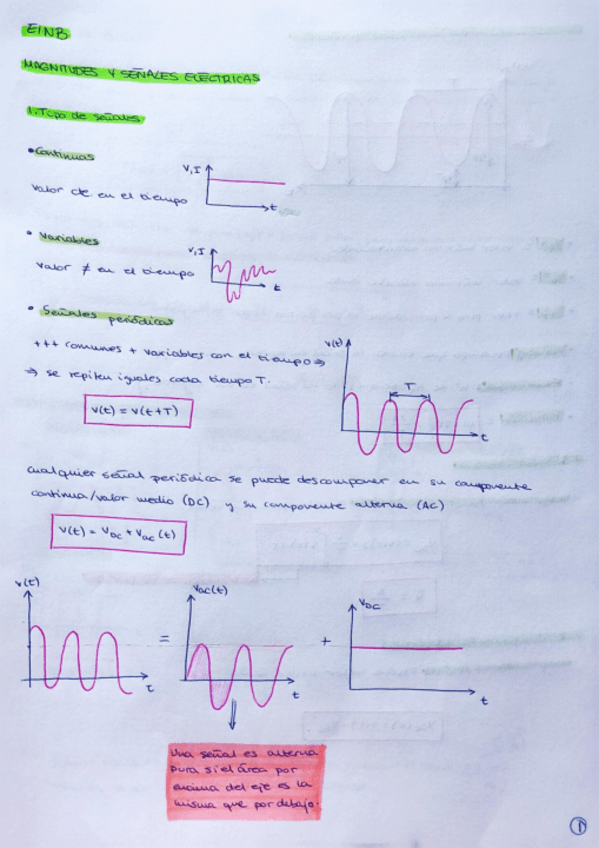 EINB
MAGNITUDES Y SEÑALES ELÉCTRICAS
1. Tipo de señales
• Continuas
Valor cte. en el tiempo
V, I
t
• Variables
Valor ≠ en el tiempo
V, I
t
• Señales periódicas
+++ comunes + variables con el tiempo ⇒
⇒ se repiten iguales cada tiempo T.
v(t) = v(t+T)
v(t)
T
t
Cualquier señal periódica se puede descomponer en su componente
continua/valor medio (DC) y su componente alterna (AC)
v(t) = VDC + Vac (t)
v(t)
t
=
VAC(t)
t
+
VDC
t
Una señal es alterna
pura si el área por
encima del eje es la
misma que por debajo.
1